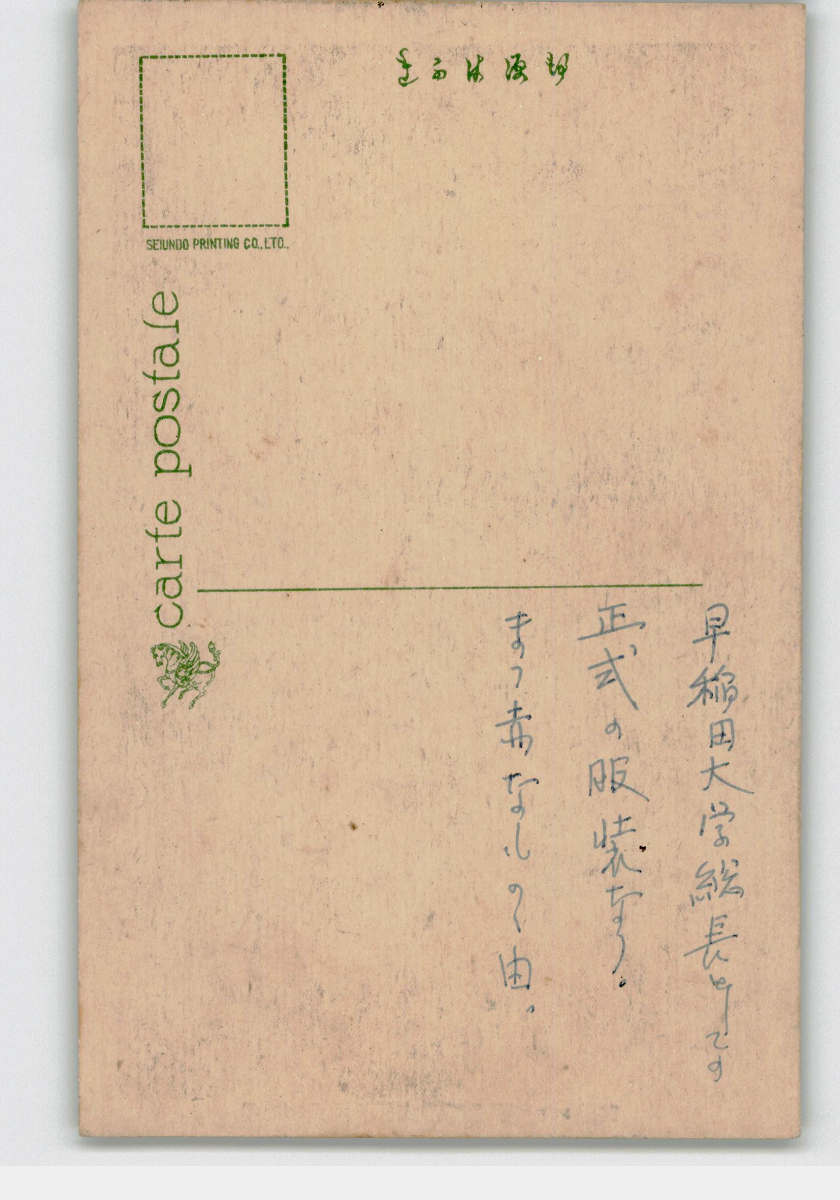 郵便はがき
SEIUNDO PRINTING CO., LTD.,
carte postale
早稲田大学総長としての
正式の服装なり。
まっ赤なもの、由。